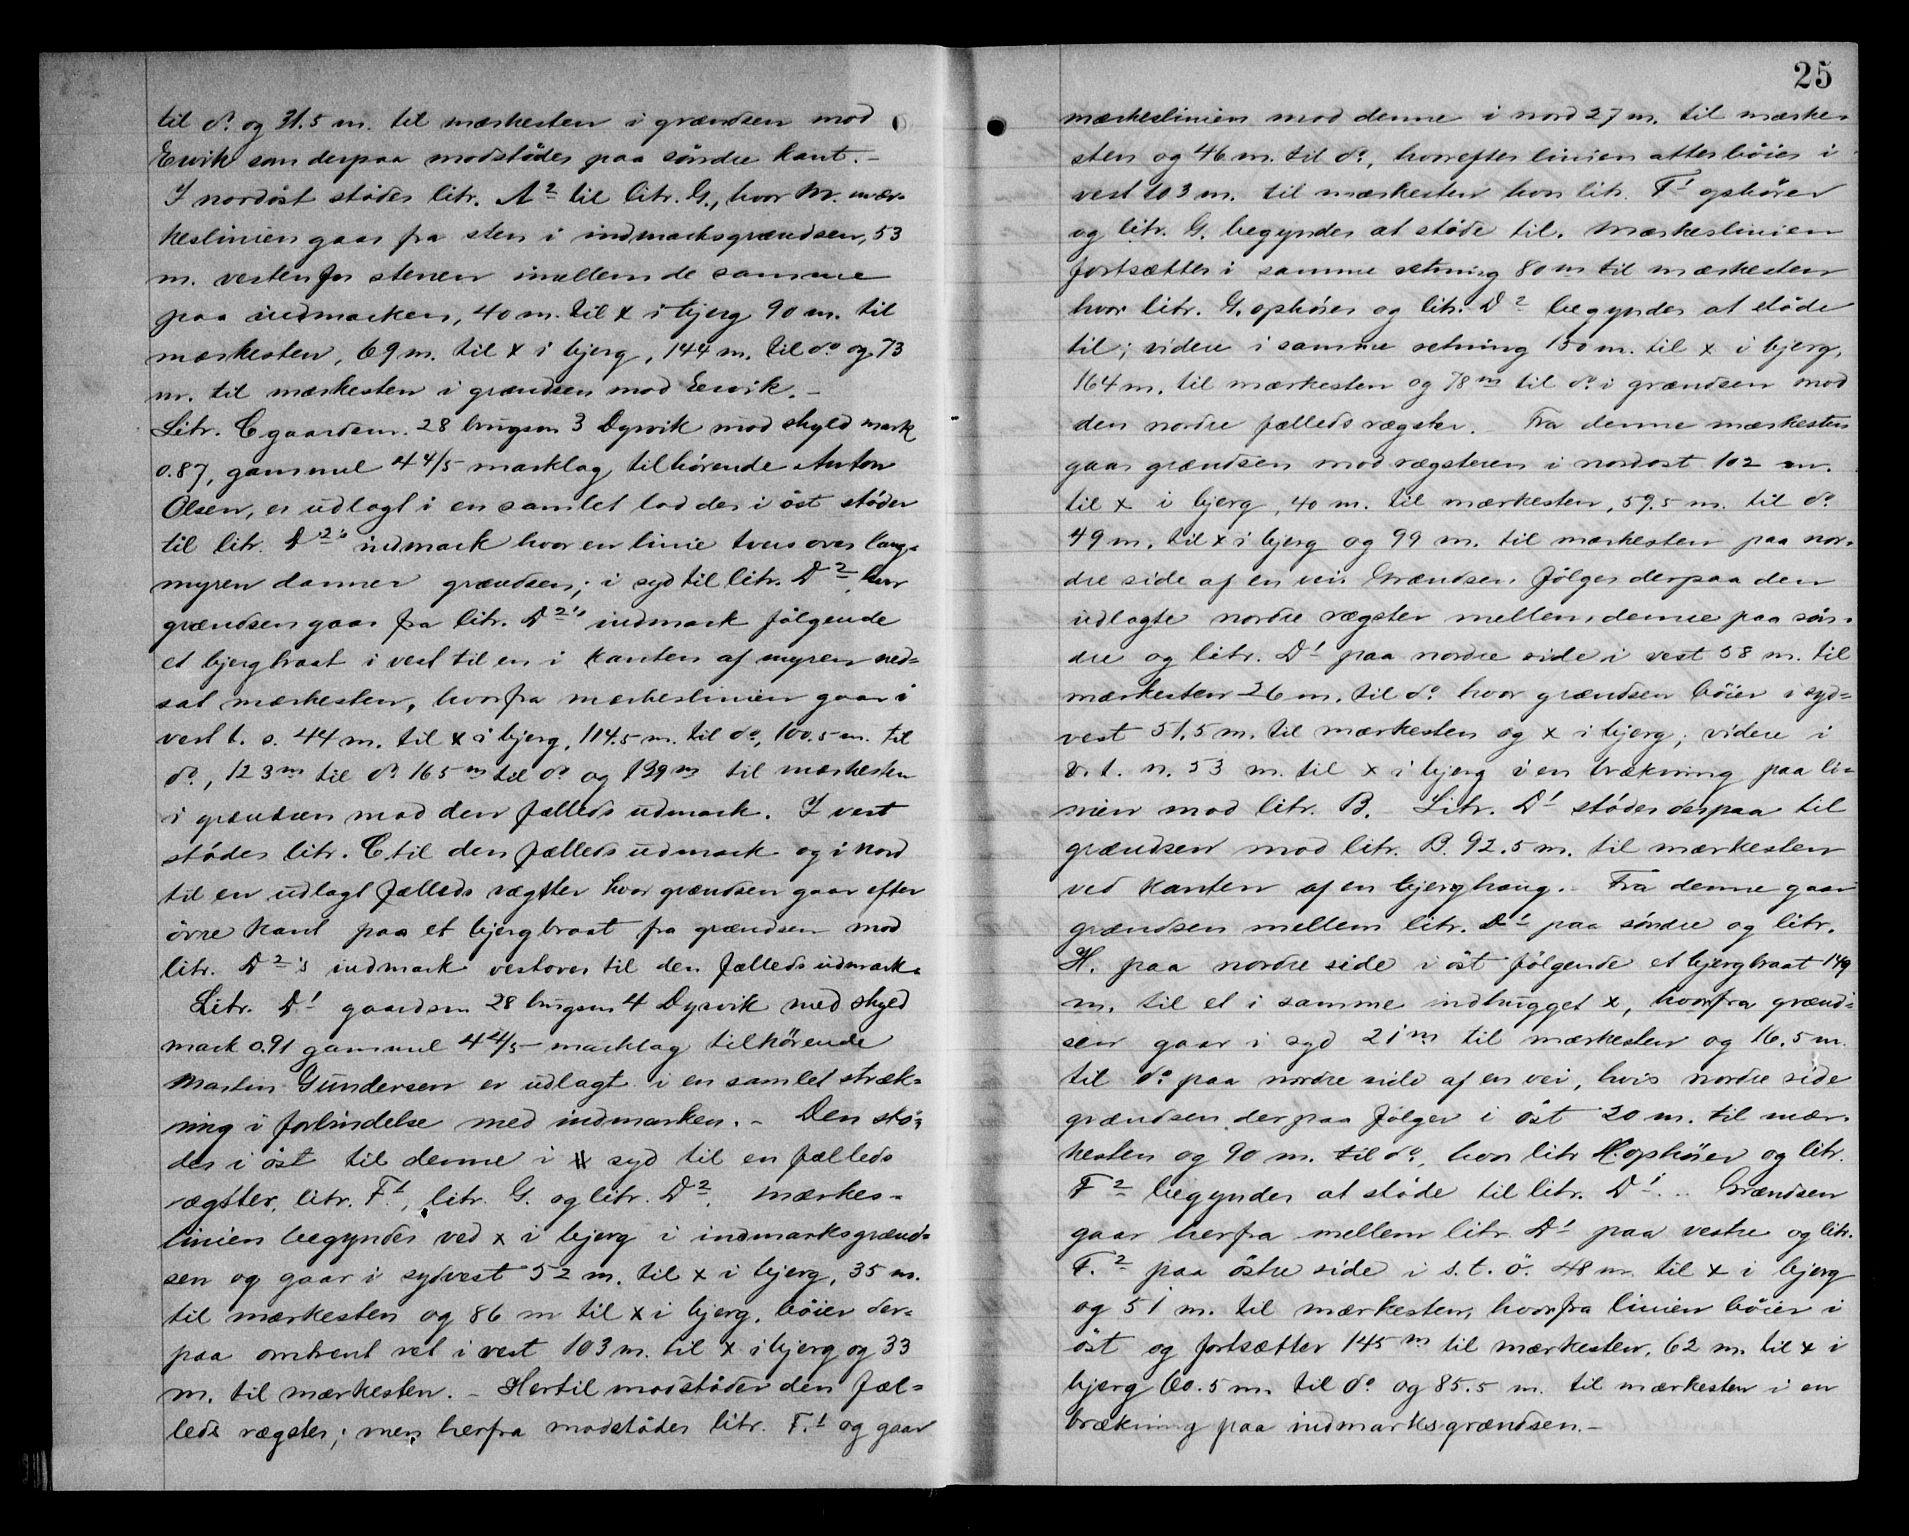 til do. og 31.5 m. til mærkesten i grændsen mod
Ervik som derpaa modstöder paa söndre kant. -
I nordöst stöder litr. A2 til litr. G., hvor m. mær-
keslinien gaar fra sten i indmarksgrændsen, 53
m. vestenfor stenen imellem de samme
paa indmarken, 40 m. til x i bjerg 90 m. til
mærkesten, 69 m. til x i bjerg, 144 m. til do og 73
m. til mærkesten i grændsen mod Ervik. -
Litr. C gaardsn. 28 brugsn 3 Dyrvik med skyld mark
0.87, gammel 4 4/5 marklag tilhørende Anton
Olsen, er udlagt i en samlet lod der i öst stöder
til litr. D2's indmark hvor en linie tvers over lang-
myren danner grændsen; i syd til litr. D2, hvor
grændsen gaar fra litr. D2's indmark fölgende
et bjergbraat i vest til en i kanten af myren ned-
sat mærkesten, hvorfra mærkeslinien gaar i
vest t. s. 44 m. til x i bjerg, 114.5 m. til do, 100.5 m. til
do, 123 m til do 165 m til do og 139 m til mærkesten
i grændsen mod den fælleds udmark. I vest
stöder litr. C til den fælleds udmark og i nord
til en udlagt fælleds rægster hvor grændsen gaar efter
övre kant paa et bjergbraat fra grændsen mod
litr. D2's indmark vestover til den fælleds udmark.
Litr. D1 gaardsn 28 brugsn 4 Dyrvik med skyld
mark 0.91 gammel 4 4/5 marklag tilhörende
Martin Gundersen er udlagt i en samlet stræk-
ning i forbindelse med indmarken. - Den stö-
der i öst til denne i syd til en fælleds
rægster, litr. F1, litr. G. og litr. D2. Mærkes-
linien begynder ved x i bjerg i indmarksgrænd-
sen og gaar i sydvest 52 m. til x i bjerg, 35 m.
til mærkesten og 86 m til x i bjerg, böier der-
paa omtrent ret i vest 103 m. til x i bjerg og 33
m. til mærkesten. - Hertil modstöder den fæl-
leds rægster; men herfra modstöder litr. F.1 og gaar
25
mærkeslinien mod denne i nord 27 m. til mærke-
sten og 46 m. til do, hvorefter linien atter böier i
vest 103 m. til mærkesten hvor litr. F1 ophörer
og litr. G. begynder at støde til. Mærkeslinien
fortsætter i samme retning 80 m til mærkesten
hvor litr. G. ophörer og litr. D2 begynder at stöde
til; videre i samme retning 150 m. til x i bjerg,
164 m. til mærkesten og 78 m til do i grændsen mod
den nordre fælleds rægster. Fra denne mærkesten
gaar grændsen mod rægsteren i nordost 102 m.
til x i bjerg, 40 m. til mærkesten, 59.5 m. til do
49 m. til x i bjerg og 99 m. til mærkesten paa nor-
dre side af en vei. Grændsen fölger derpaa den
udlagte nordre rægster mellem denne paa sön-
dre og litr. D1 paa nordre side i vest 58 m. til
mærkesten 26 m. til do hvor grændsen böier i syd-
vest 51.5 m. til mærkesten og x i bjerg; videre i
v. t. n. 53 m. til x i bjerg i en brækning paa li-
nien mod litr. B. Litr. D1 stöder derpaa til
grændsen mod litr. B. 92.5 m. til mærkesten
ved kanten af en bjerghaug. Fra denne gaar
grændsen mellem litr. D1 paa söndre og litr.
H. paa nordre side i öst fölgende et bjergbraat 149
m. til et i samme indhugget x, hvorfra grænd-
sen gaar i syd 21 m til mærkesten og 16.5 m.
til do paa nordre side af en vei, hvis nordre side
grændsen derpaa fölger i öst 20 m. til mær-
kesten og 90 m. til do, hvor litr H. ophörer og litr.
F2 begynder at støde til litr. D1. Grændsen
gaar herfra mellem litr. D1 paa vestre og litr.
F.2 paa östre side i s. t. ö. 48 m. til x i bjerg
og 51 m. til mærkesten, hvorfra linien böier i
öst og fortsætter 145 m til mærkesten, 62 m. til x i
bjerg 60.5 m. til do og 85.5 m. til mærkesten i en
brækning paa indmarksgrændsen. -